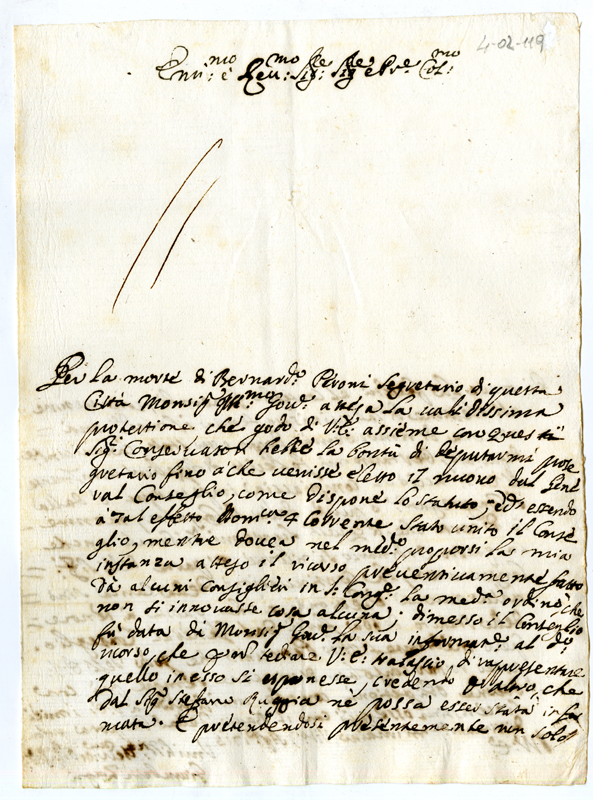 4-02-119
Emi:mo e Reu:mo Sig:re Sig:re e Pre Col:mo
Per la morte di Bernard:o Peroni Segretario di questa
Città Monsig:r Ill:mo Gov:re attesa la validissima
protettione che godo di V:E: assieme con questi
Sig:ri Conservatori hebbe la bontà di deputarmi prose
gretario fino à che venisse eletto il nuovo dal Gene
ral Conseglio, come dispone lo statuto, ed essendo
à tal effetto Dom:ca 4 Corrente stato unito il Conse
glio, mentre dovea nel med:o proporsi la mia
instanza atteso il ricorso preventivamente fatto
da alcuni Consiglieri in S: Cong:e la med:a ordinò che
non si innovasse cosa alcuna; dimesso il Conseglio
fù data di Monsig:r Gov:re la sua informat:e al d:o
ricorso, che per tediare V:E: tralascio di rapresentare
quello in esso si esponesse, credendo che
dal Sig:r Stefano Ruggia nè possa esser stata infor
mata. E pretendendosi presentemente non solo